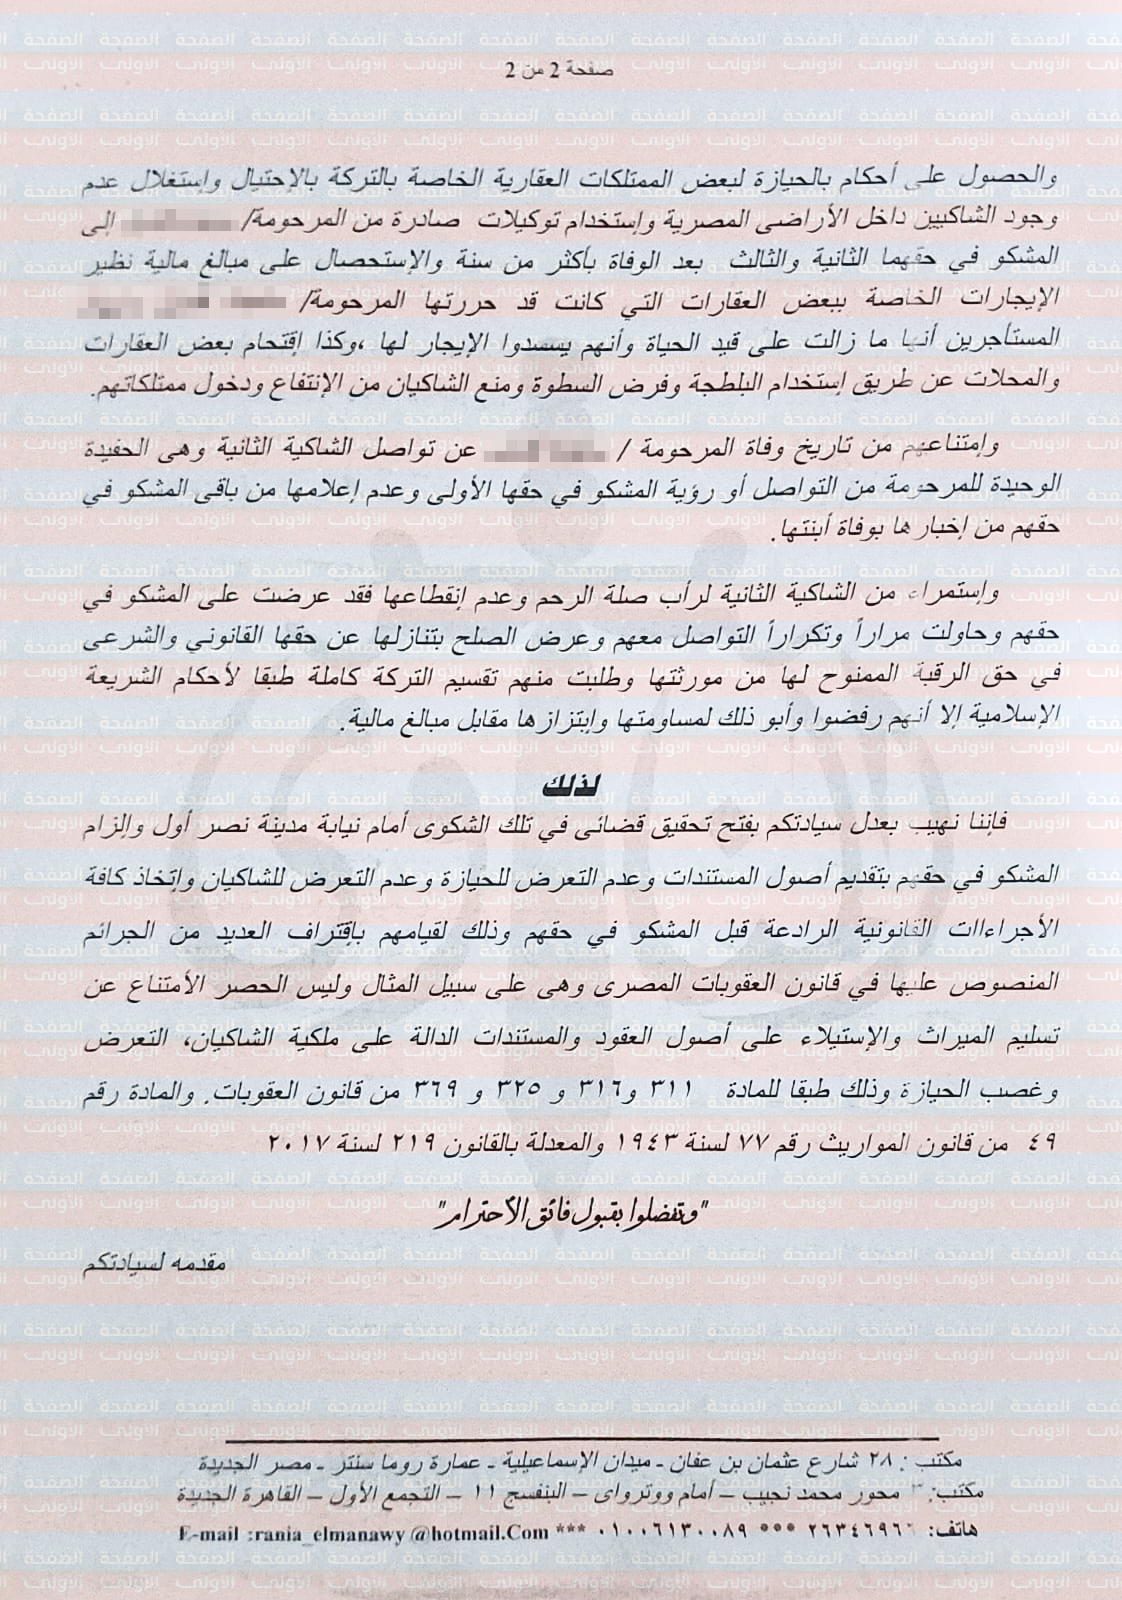 صفحة 2 من 2
والحصول على أحكام بالحيازة لبعض الممتلكات العقارية الخاصة بالتركة بالإحتيال وإستغلال عدم
وجود الشاكيين داخل الأراضى المصرية وإستخدام توكيلات صادرة من المرحومة/ إلى
المشكو في حقهما الثانية والثالث بعد الوفاة بأكثر من سنة والإستحصال على مبالغ مالية نظير
الإيجارات الخاصة ببعض العقارات التي كانت قد حررتها المرحومة/
المستأجرين أنها ما زالت على قيد الحياة وأنهم يسسدوا الإيجار لها ،وكذا إقتحام بعض العقارات
والمحلات عن طريق إستخدام البلطجة وفرض السطوة ومنع الشاكيان من الإنتفاع ودخول ممتلكاتهم.
وإمتناعهم من تاريخ وفاة المرحومة / عن تواصل الشاكية الثانية وهى الحفيدة
الوحيدة للمرحومة من التواصل أو رؤية المشكو في حقها الأولى وعدم إعلامها من باقى المشكو في
حقهم من إخبارها بوفاة أبنتها.
وإستمراء من الشاكية الثانية لرأب صلة الرحم وعدم إنقطاعها فقد عرضت على المشكو في
حقهم وحاولت مراراً وتكراراً التواصل معهم وعرض الصلح بتنازلها عن حقها القانوني والشرعى
في حق الرقبة الممنوح لها من مورثتها وطلبت منهم تقسيم التركة كاملة طبقا لأحكام الشريعة
الإسلامية إلا أنهم رفضوا وأبو ذلك لمساومتها وإبتزازها مقابل مبالغ مالية.
لذلك
فإننا نهيب بعدل سيادتكم بفتح تحقيق قضائى في تلك الشكوى أمام نيابة مدينة نصر أول وإلزام
المشكو في حقهم بتقديم أصول المستندات وعدم التعرض للحيازة وعدم التعرض للشاكيان وإتخاذ كافة
الأجراءاات القانونية الرادعة قبل المشكو في حقهم وذلك لقيامهم بإقتراف العديد من الجرائم
المنصوص عليها في قانون العقوبات المصرى وهى على سبيل المثال وليس الحصر الأمتناع عن
تسليم الميراث والإستيلاء على أصول العقود والمستندات الدالة على ملكية الشاكيان، التعرض
وغصب الحيازة وذلك طبقا للمادة ٣١١ و٣١٦ و ٣٢٥ و ٣٦٩ من قانون العقوبات. والمادة رقم
٤٩ من قانون المواريث رقم ٧٧ لسنة ١٩٤٣ والمعدلة بالقانون ٢١٩ لسنة ٢٠١٧
"وتفضلوا بقبول فائق الأحترام"
مقدمه لسيادتكم
مكتب : ٢٨ شارع عثمان بن عفان - ميدان الإسماعيلية - عمارة روما سنتر - مصر الجديدة
مكتب: ٣ محور محمد نجيب – أمام ووترواى – البنفسج ١١ – التجمع الأول – القاهرة الجديدة
هاتف: ٢٦٣٤٦٩٦٦ *** ٠١٠٠٦١٣٠٠٨٩ *** E-mail :rania_elmanawy@hotmail.Com